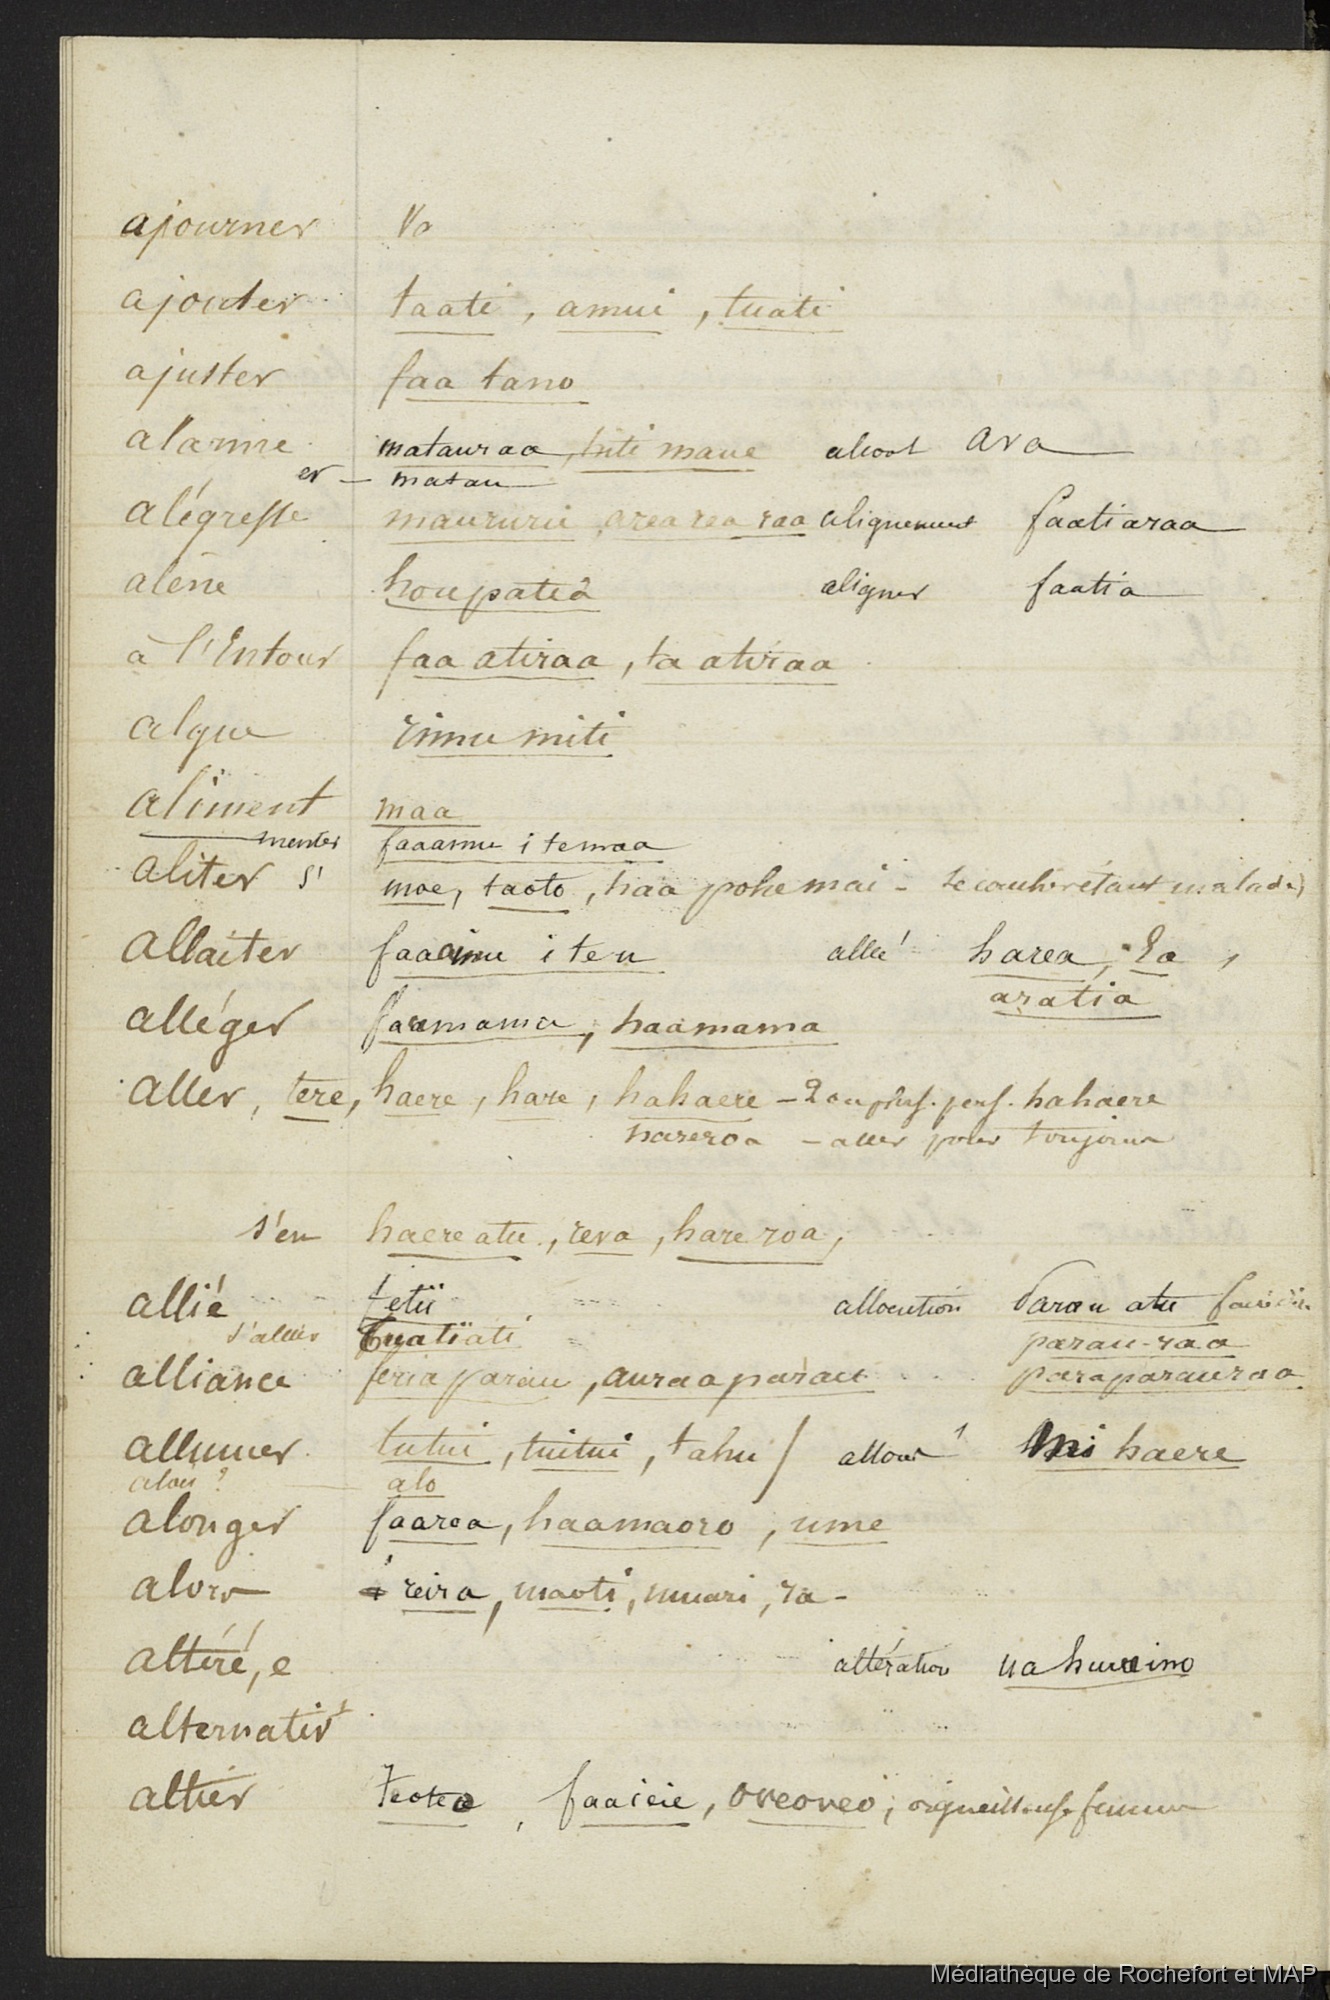 ajourner Vo
ajouter taati, amui, tuati
ajuster faa tano
alarme matauraa, titi maue alcool ava
er — matau
alégresse maururu area rea raa alignement faatiaraa
alène houpatia aligner faatia
à l'Entour faa atiraa, ta atiraa
algue rimu miti
aliment maa
menter faaamu i te maa
aliter s' moe, taoto, haa pohe mai - se coucher (étant malade)
allaiter faaamu i te u allée harea, Ea,
aratia
alléger faamama, haamama
aller, tere, haere, hare, hahaere - 2 ou plus. pers. hahaere
hareroa - aller pour toujours
s'en haere atu, reva, hare roa,
allié fetii allocution Parau atu
s'allier Tuatiati parau-raa
alliance feria parau, auraa parau paraparauraa
allumer tutui, tuitui, tahu / allons! Mi haere
alo
alonger faaroa, haamaoro, ume
alors reira, maoti, muari, ra -
altéré, e altération ua huru ino
alternativt
altier teotea, faaieie, oreoreo; orgueilleuse femme
Médiathèque de Rochefort et MAP